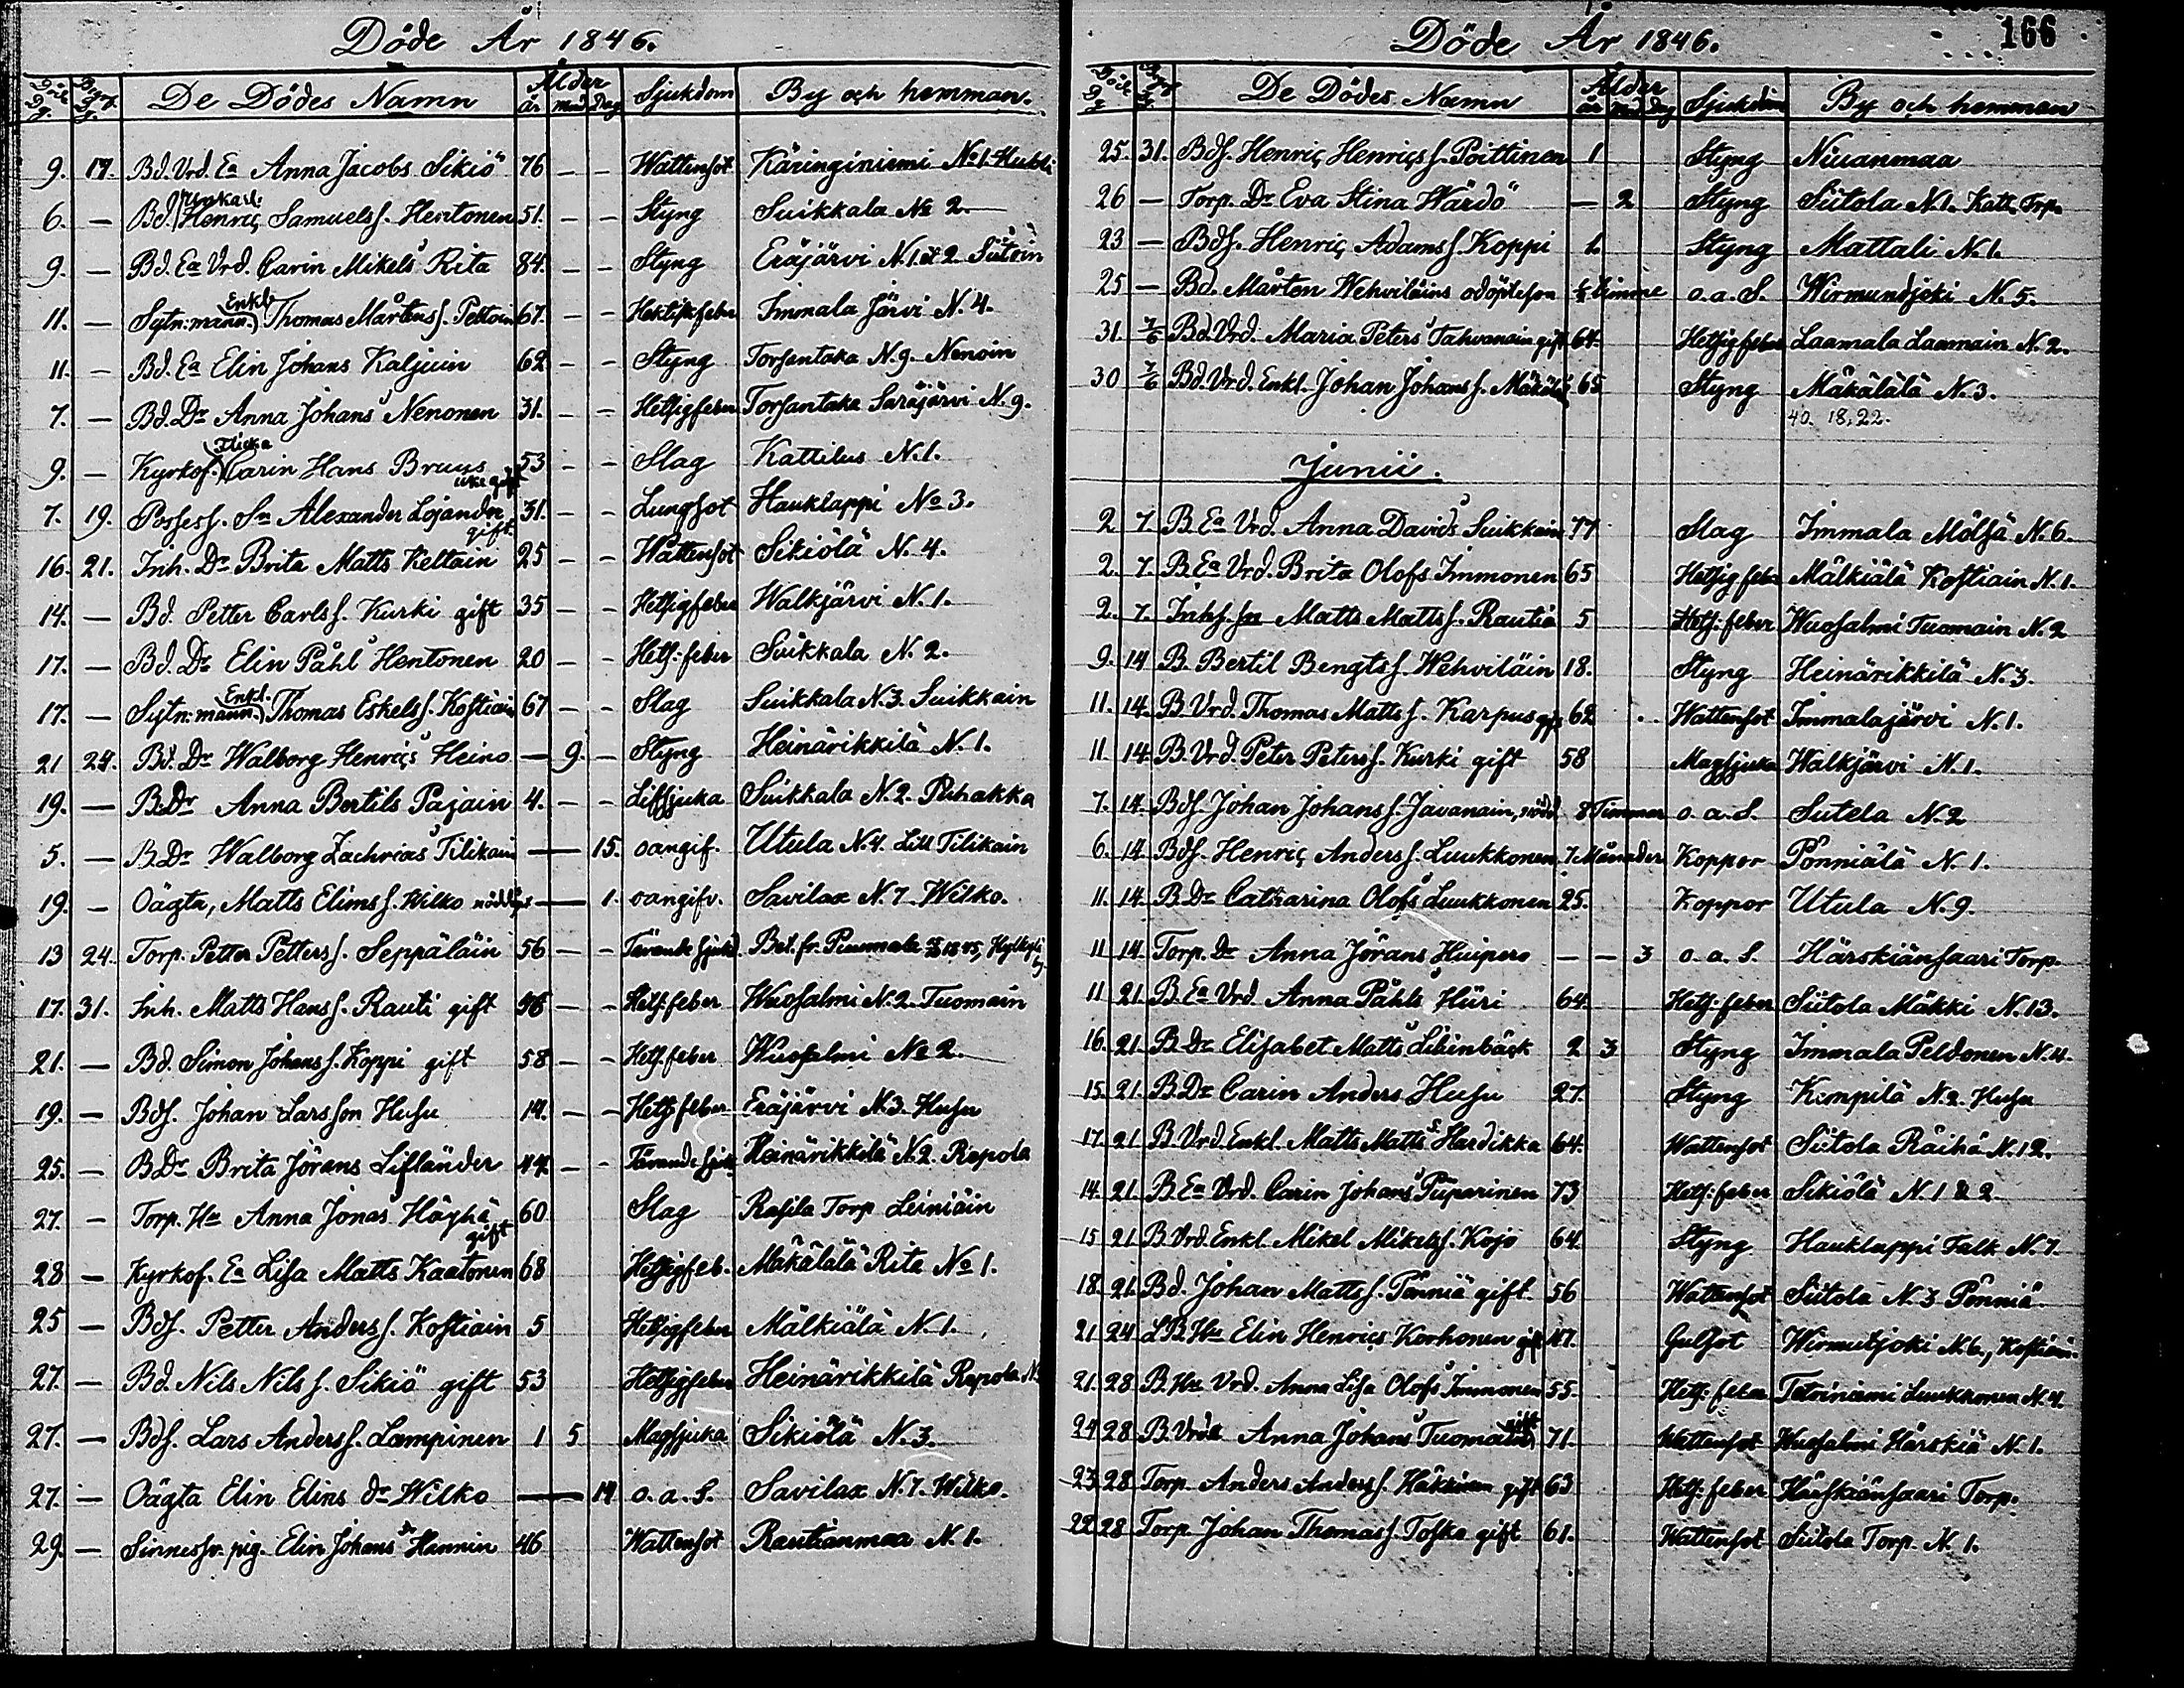 Döde År 1846.
Död Dg. Begr. Dg. De Dödes Namn Ålder år mnd dag Sjukdom By och hemman.
9. 17. Bd. Vrd. Ea Anna Jacobs Sikiö 76 — — Wattensot Käringiniemi No 1. Hukti
Unkarl:
6. — Bd. Henriç Samuelss. Hentonen 51. — — Styng Suikkala No 2.
9. — Bd. Ea Vrd. Carin Mikels Rita 84. — — Styng Eräjärvi N. 1 et 2. Sutoin
Enkl.
11. — Sytn:mann. Thomas Mårtenss. Peltoin 67. — — Hektisk feber Immala Järvi N. 4.
11. — Bd. Ea Elin Johans Kaljuin 62 — — Styng Torsantaka N. 9. Nenoin
7. — Bd. Dr Anna Johans Nenonen 31. — — Hetsigfeber Torsantaka Saräjärvi N. 9.
Flicka
9. — Kyrkof. Carin Hans Bruus icke gift 53 — — Slag Kattilus N. 1.
7. 19. Possess. Sn Alexander Lojander gift 31. — — Lungsot Hauklappi No 3.
16. 21. Inh. Dr Brita Matts Keltain 25 — — Wattensot Sikiölä N. 4.
14. — Bd. Petter Carlss. Kurki gift 35 — — Hetsigfeber Walkjärvi N. 1.
17. — Bd. Dr Elin Påhl Hentonen 20 — — Hets: feber Suikkala N. 2.
Enkl.
17. — Sytn:mann. Thomas Eskelss. Kostiain 67 — — Slag Suikkala N. 3. Suikkain
21 24. Bd. Dr Walborg Henriçs Heino — 9. — Styng Heinärikkilä N. 1.
19. — B.Dr Anna Bertils Pajain 4. — — Lifsjuka Suikkala N. 2. Pihakka
5. — B.Dr Walborg Zachrias Tilikain — 15. oangif. Utula N. 4. Litt Tilikain
19. — Oägta, Matts Elins s. Wilko nöddöpt — 1. oangifv. Savilax N. 7. Wilko.
13 24. Torp. Petter Petterss. Seppäläin 56 — — Tärande sjukd. Bet. fr. Puumala 1845,
17. 31. Inh. Matts Hanss. Rauti gift 46 — — Hets: feber Wuosalmi N. 2. Tuomain
21. — Bd. Simon Johanss. Koppi gift 58 — — Hets feber Wuosalmi No 2.
19. — Bds. Johan Larsson Husu 14. — — Hets feber Eräjärvi N. 3. Husu
25. — B.Dr Brita Jörans Lifländer 44. — — Tärande sjuk. Heinärikkilä N. 2. Repola
27. — Torp. Hu Anna Jonas Häyhä gift 60. Slag Rasila Torp Leiniäin
28 — Kyrkof. Ea Lisa Matts Kaatonen 68 Hetsigfeb. Mäkälälä Rita No 1.
25 — Bds. Petter Anderss. Kostiain 5 Hetsigfeber Mälkiälä N. 1.
27. — Bd. Nils Nilss. Sikiö gift 53 Hetsigfeber Heinärikkilä Repola
27. — Bds. Lars Anderss. Lampinen 1 5 Magsjuka Sikiölä N. 3.
27. — Oägta Elin Elins dr Wilko — 14 o. a. S. Savilax N. 7. Wilko.
29. — Sinnessv. pig. Elin Johans dr Hannin 46 Wattensot Rautianmaa N. 1.
Döde År 1846. 166
Död Dg Begr. Dg. De Dödes Namn Ålder år mnd dag Sjukdom By och hemman
25. 31. Bds. Henriç Henriçss. Poittinen 1 Styng Niuanmaa
26 — Torp. Dr Eva Stina Wärdö — 2 Styng Siitola N. 1. Katt. Trp.
23 — Bds. Henriç Adamss. Koppi 1. Styng Mattali N. 1.
25 — Bd. Mårten Wehviläins odöpte son ½ timme o. a. S. Wirmundjoki N. 5.
31. 7/6 Bd. Vrd. Maria Peters Tahvanain gift 64. Hetsigfeber Laamala Laamain N. 2.
30 7/6 Bd. Vrd. Enkl. Johan Johanss. Mäkälä 65 Styng Mäkälälä N. 3.
40. 18, 22.
Junii.
2 7. B. Ea Vrd. Anna Davids Suikkain 77 Slag Immala Mölsä N. 6.
2. 7. B. Ea Vrd. Brita Olofs Immonen 65 Hetsig feber Mälkiälä Kostiain N. 1.
2. 7. Inhs. sn Matts Mattss. Rautia 5 Hets: feber Wuosalmi Tuomain N. 2
9. 14 B. Bertil Bengtss. Wehviläin 18. Styng Heinärikkilä N. 3.
11. 14. B. Vrd. Thomas Mattss. Karpus gift 62 Wattensot Immalajärvi N. 1.
11. 14. B. Vrd. Peter Peterss. Kurki gift 58 Magsjuka Walkjärvi N. 1.
7. 14. Bds. Johan Johanss. Javanain, nödd. 8 Timmar o. a. S. Sutela N. 2
6. 14. Bds. Henriç Anderss. Luukkonen 7 Månader Koppor Pönniälä N. 1.
11. 14. B. Dr Catharina Olofs Luukkonen 25. Koppor Utula N. 9.
11 14. Torp. Dr Anna Jörans Huipero — — 3 o. a. S. Härskiänsaari Torp.
11 21. B. Ea Vrd Anna Påhls Hüri 64. Hets: feber Siitola Mäkki N. 13.
16. 21. B. Dr Elisabet Matts Libinbäck 2 3 Styng Immala Peldonen N. 4.
15. 21. B. Dr Carin Anders Husu 27. Styng Kimpilä N. 2. Husu
17. 21 B. Vrd. Enkl. Matts Matts s. Hardikka 64. Wattensot Siitola Räihä N. 12.
14. 21. B. Ea Vrd. Carin Johans Piiparinen 73 Hets: feber Sikiölä N. 1 & 2.
15 21. B. Vrd. Enkl. Mikel Mikelss. Kojo 64. Styng Hauklappi Falk N. 7.
18. 21. Bd. Johan Mattss. Pänniä gift. 56 Wattensot Siitola N. 3 Pönniä.
21 24 LB. Hu Elin Henriçs Korhonen gift 47. Gulsot Wirmutjoki N. 6., Kostiain.
21. 28 B. Hu Vrd. Anna Lisa Olofs Immonen 55. Hets: feber Tetriniemi Luukkonen N. 4.
24 28 B. Vrd. Anna Johans Tuomain gift 71. Wattensot Wuosalmi Härskiä N. 1.
23. 28 Torp. Anders Anderss. Häkkinen gift 63 Hets: feber Härskiänsaari Torp.
22 28 Torp. Johan Thomass. Toska gift 61. Wattensot Siitola Torp. N. 1.